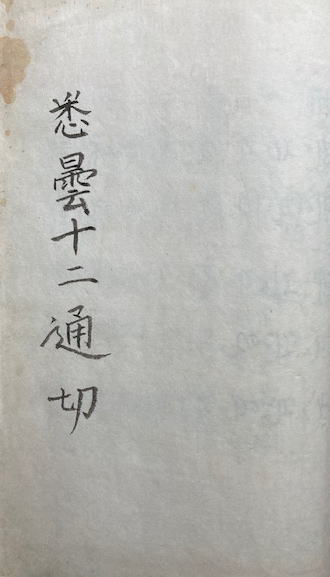 悉曇十二通切